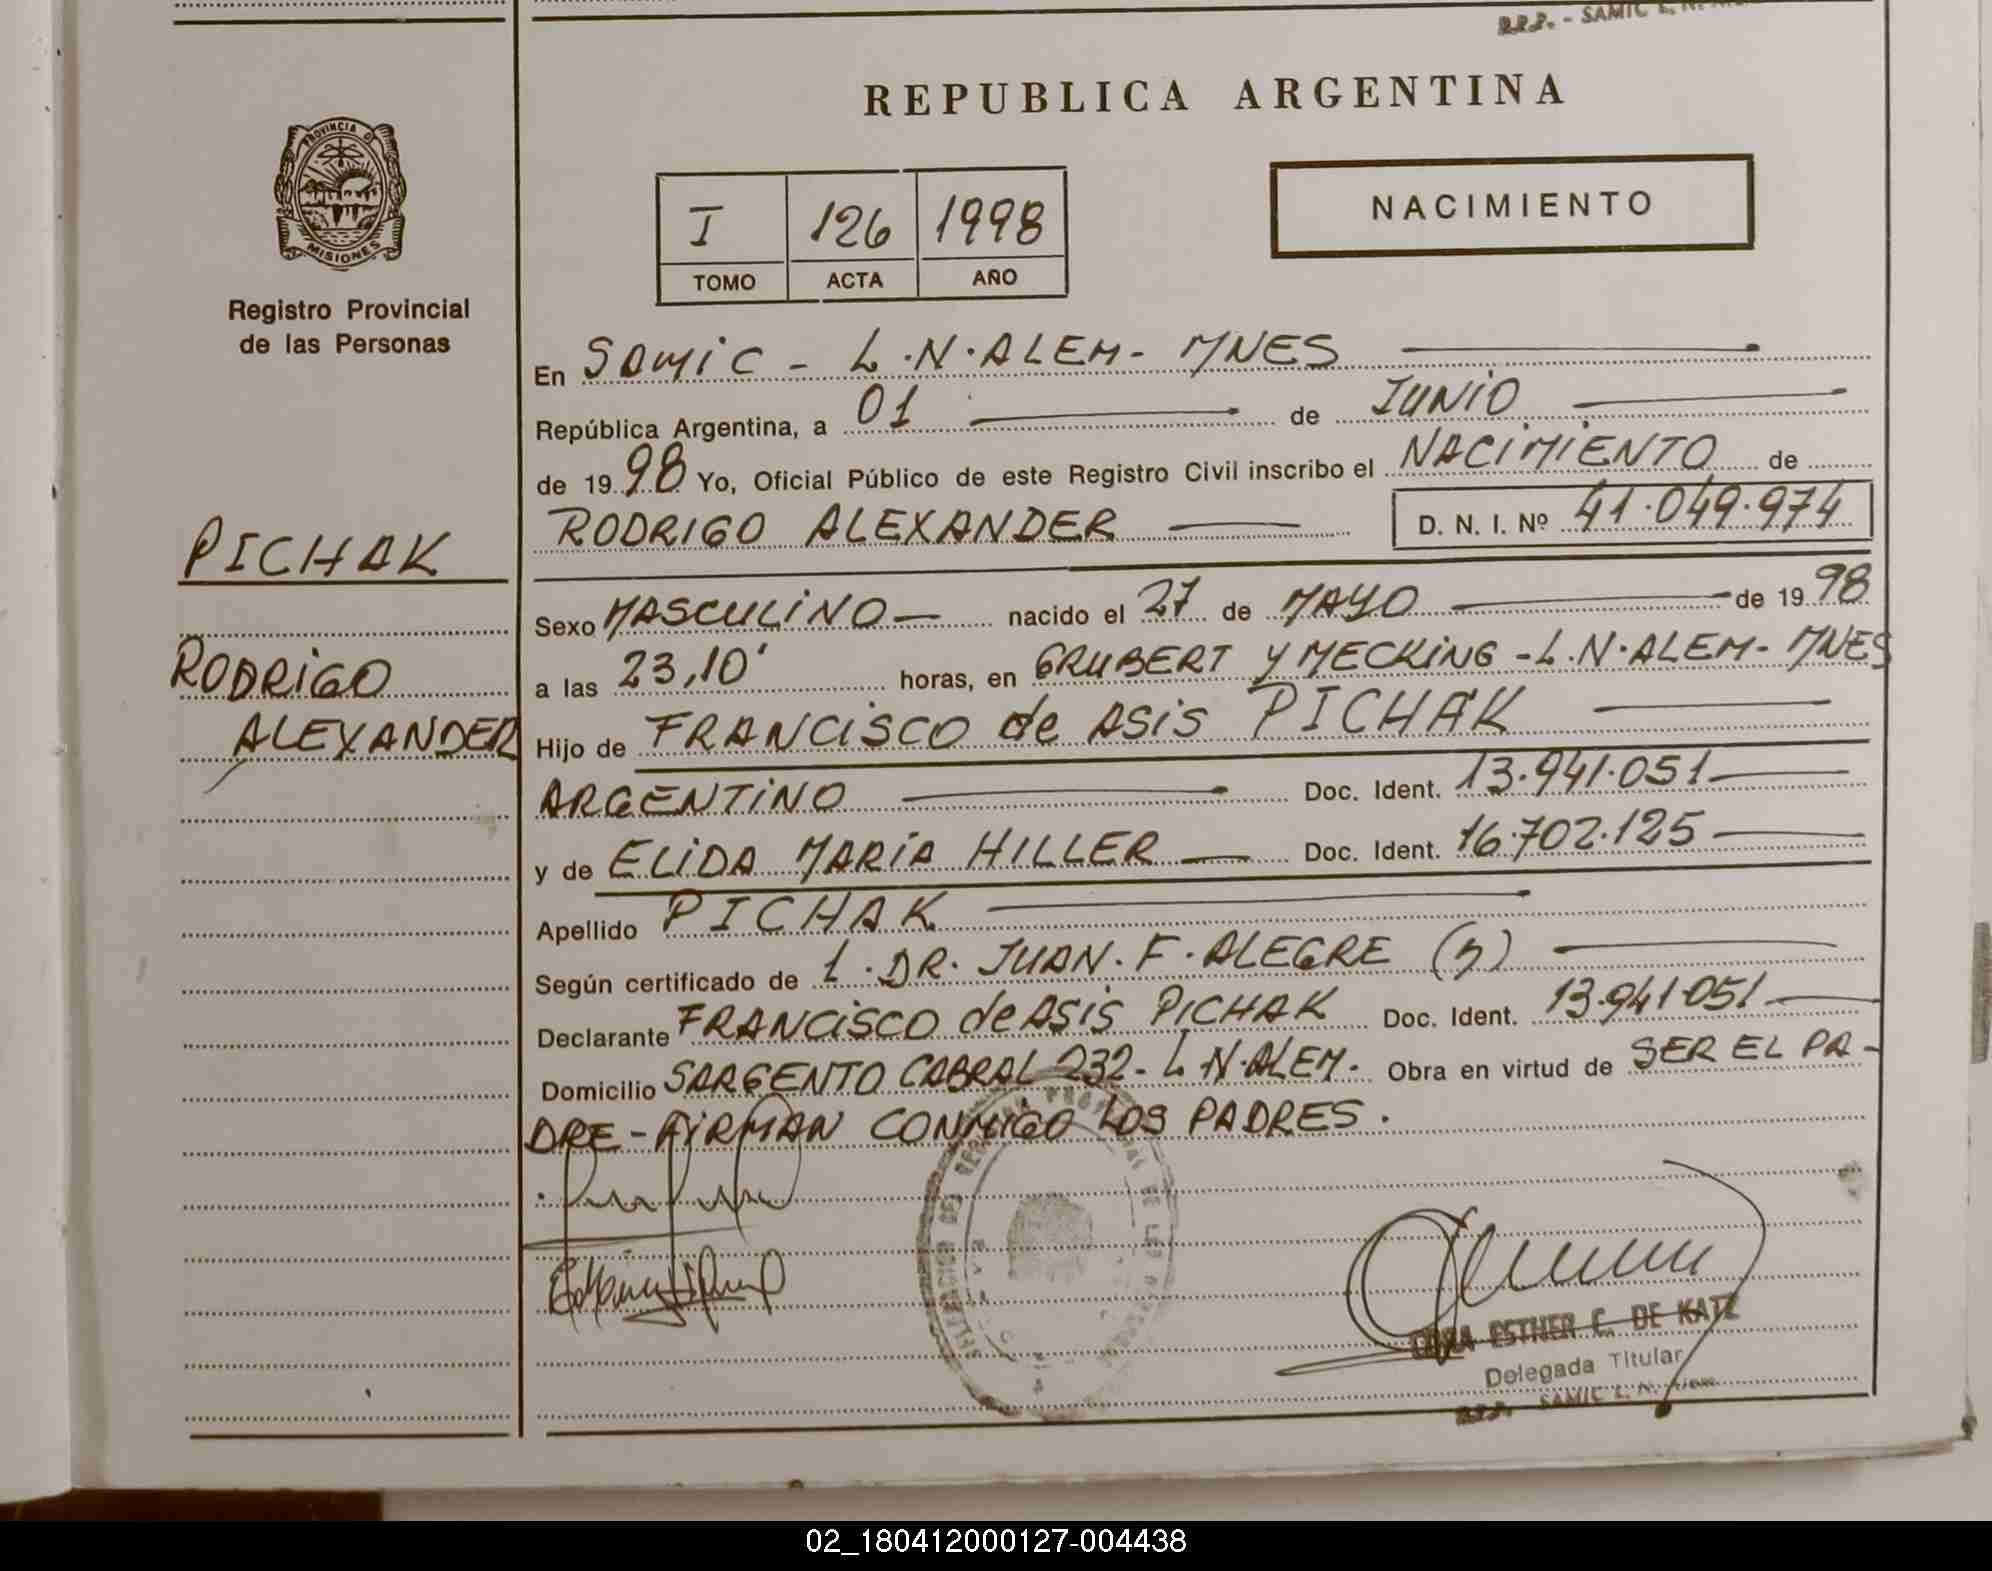 R.R.P. - SAMIC L. N.
REPUBLICA ARGENTINA
PROVINCIA DE
MISIONES
Registro Provincial
de las Personas
I 126 1998
TOMO ACTA AÑO
NACIMIENTO
En SAMIC - L.N. ALEM - MNES
República Argentina, a 01 de JUNIO
de 1998 Yo, Oficial Público de este Registro Civil inscribo el NACIMIENTO de
RODRIGO ALEXANDER D. N. I. Nº 41.049.974
PICHAK
RODRIGO
ALEXANDER
Sexo MASCULINO nacido el 27 de MAYO de 1998
a las 23,10' horas, en GRUBERT Y MECKING - L.N. ALEM - MNES
Hijo de FRANCISCO de ASIS PICHAK
ARGENTINO Doc. Ident. 13.941.051
y de ELIDA MARIA HILLER Doc. Ident. 16.702.125
Apellido PICHAK
Según certificado de 1. DR. JUAN. F. ALEGRE
Declarante FRANCISCO de ASIS PICHAK Doc. Ident. 13.941.051
Domicilio SARGENTO CABRAL 232 - L.N. ALEM. Obra en virtud de SER EL PA-
DRE - FIRMAN CONMIGO LOS PADRES.
ESTHER C. DE KATZ
Delegada Titular
R.R.P. SAMIC L. N. Alem
02_180412000127-004438